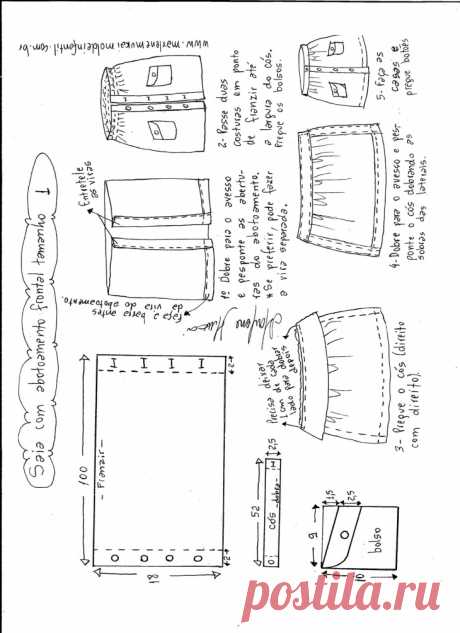 Saia com abotoamento frontal tamanho 1
www.marlenemukaimoldeinfantil.com.br
100
- Franzir -
2
2
18
Faça a barra antes
da vira do abotoamento.
Entretele
as viras
1º Dobre para o avesso
e pesponte as abertu-
ras do abotoamento.
* Se preferir, pode fazer
a vira separada.
2- Passe duas
costuras em ponto
de franzir até
a largura do cós.
Pregue os bolsos.
52
2,5
cós
- dobra -
Precisa deixar
1 cm de cada
lado para dobrar
depois
3- Pregue o cós (direito
com direito).
4- Dobre para o avesso e pes-
ponte o cós dobrando as
sobras das laterais.
5- Faça as
casas e
pregue botões
1,5
2,5
9
10
bolso
postila.ru